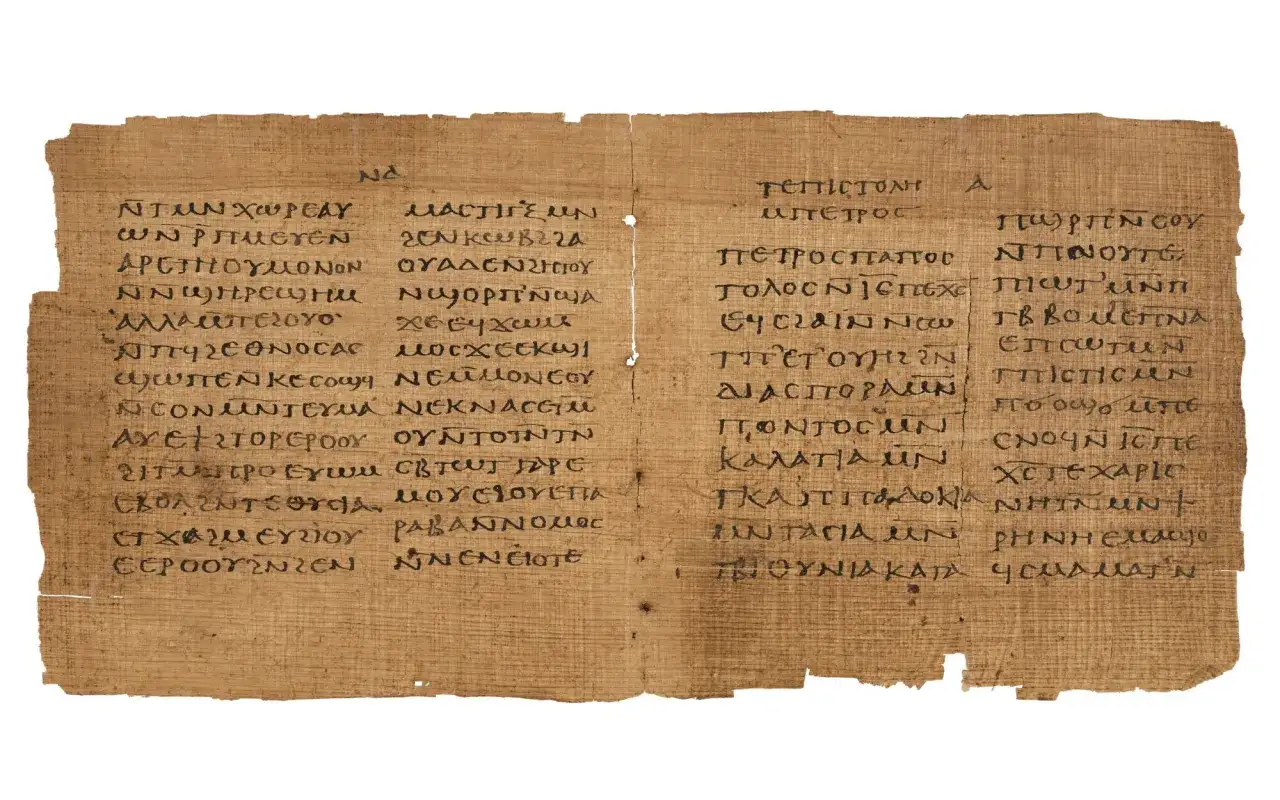 ⲛⲇ
ⲛ̄ⲧⲙⲛⲭⲱⲣⲉⲁⲩ
ⲱⲛ ⲣ̄ⲡⲙⲉⲩⲉⲛ̄
ⲁⲣⲉⲧⲏⲟⲩⲙⲟⲛⲟⲛ
ⲛ̄ⲛϣⲏⲣⲉϣⲏⲙ
ⲁⲗⲗⲁⲙⲡⲉϩⲟⲩⲟ
ⲛ̄ⲡϥϩⲉⲑⲛⲟⲥⲁⲥ
ϣⲱⲡⲉⲛ̄ⲕⲉⲥⲟϣϥ
ⲛ̄ⲥⲟⲛⲙⲛ̄ⲧⲉⲩⲙⲁ
ⲁⲩⲉϯϩⲧⲟⲣⲉⲣⲟⲟⲩ
ϩⲓⲧⲙ̄ⲡⲣⲟⲉⲩⲱⲙ
ⲉⲃⲟⲗϩⲛⲧⲉⲑⲩⲥⲓⲁ
ⲉⲧϫⲁϩⲙⲉⲩϩⲓⲟⲩ
ⲉⲉⲣⲟⲟⲩϩⲛϩⲉⲛ
ⲙⲁⲥⲧⲓⲅⲝⲙⲛ
ϩⲉⲛⲕⲱⲃϩϩⲁ
ⲟⲩⲁⲇⲉⲛϩⲏⲧⲟⲩ
ⲛϣⲟⲣⲡ̄ⲛ̄ϣⲁ
ϫⲉⲉϥϫⲱⲙ
ⲙⲟⲥϫⲉⲉⲕϣⲓ
ⲛⲉⲙ̄ⲙⲟⲛⲉⲟⲩ
ⲛⲉⲕⲛⲁⲥⲉⲧⲙ
ⲟⲩⲛ̄ⲧⲟⲧⲛⲧⲛ̄
ⲥⲃⲧⲱⲧⲅⲁⲣⲉ
ⲙⲟⲩⲉϩⲟⲩⲉⲡⲁ
ⲣⲁⲃⲁⲛ̄ⲛⲟⲙⲟⲥ
ⲛ̄ⲛⲉⲛⲉⲓⲟⲧⲉ
ⲧⲉⲡⲓⲥⲧⲟⲗⲏ ⲁ
ⲙⲡⲉⲧⲣⲟⲥ
ⲡⲉⲧⲣⲟⲥⲡⲁⲡⲟⲥ
ⲧⲟⲗⲟⲥⲛ̄ⲓ̄ⲥ̄ⲡⲉⲭ̄ⲥ̄
ⲉϥⲥϩⲁⲓⲛ̄ⲛⲥⲱ
ⲧⲡ̄ⲉⲧⲟⲩⲏϩϩⲛ̄
ⲇⲓⲁⲥⲡⲟⲣⲁⲙⲛ̄
ⲡⲟⲛⲧⲟⲥⲙⲛ̄
ⲕⲁⲗⲁⲧⲓⲁⲙⲛ̄
ⲧⲕⲁⲡⲡⲁⲇⲟⲕⲓⲁ
ⲙⲛⲧⲁⲥⲓⲁⲙⲛ̄
ⲧⲃⲓⲑⲩⲛⲓⲁⲕⲁⲧⲁ
ⲡϣⲣⲡ̄ⲛ̄ⲥⲟⲩ
ⲛ̄ⲡⲛⲟⲩⲧⲉ
ⲡⲓⲱⲧⲙⲛ̄ⲡ
ⲧⲃⲃⲟⲙⲡⲉⲡⲛ̄ⲁ̄
ⲉⲡⲥⲱⲧⲙⲛ̄
ⲧⲡⲓⲥⲧⲓⲥⲙⲛ̄
ⲡϭⲟϣϭϣⲙ̄ⲡⲉ
ⲥⲛⲟϥⲛ̄ⲓ̄ⲥ̄ⲡⲉ
ⲭ̄ⲥ̄ⲧⲉⲭⲁⲣⲓⲥ
ⲛⲏⲧⲛ̄ⲙⲛϯ
ⲣⲏⲛⲏⲉⲙⲁϣⲟ
ϥⲥⲙⲁⲙⲁⲧⲛ̄